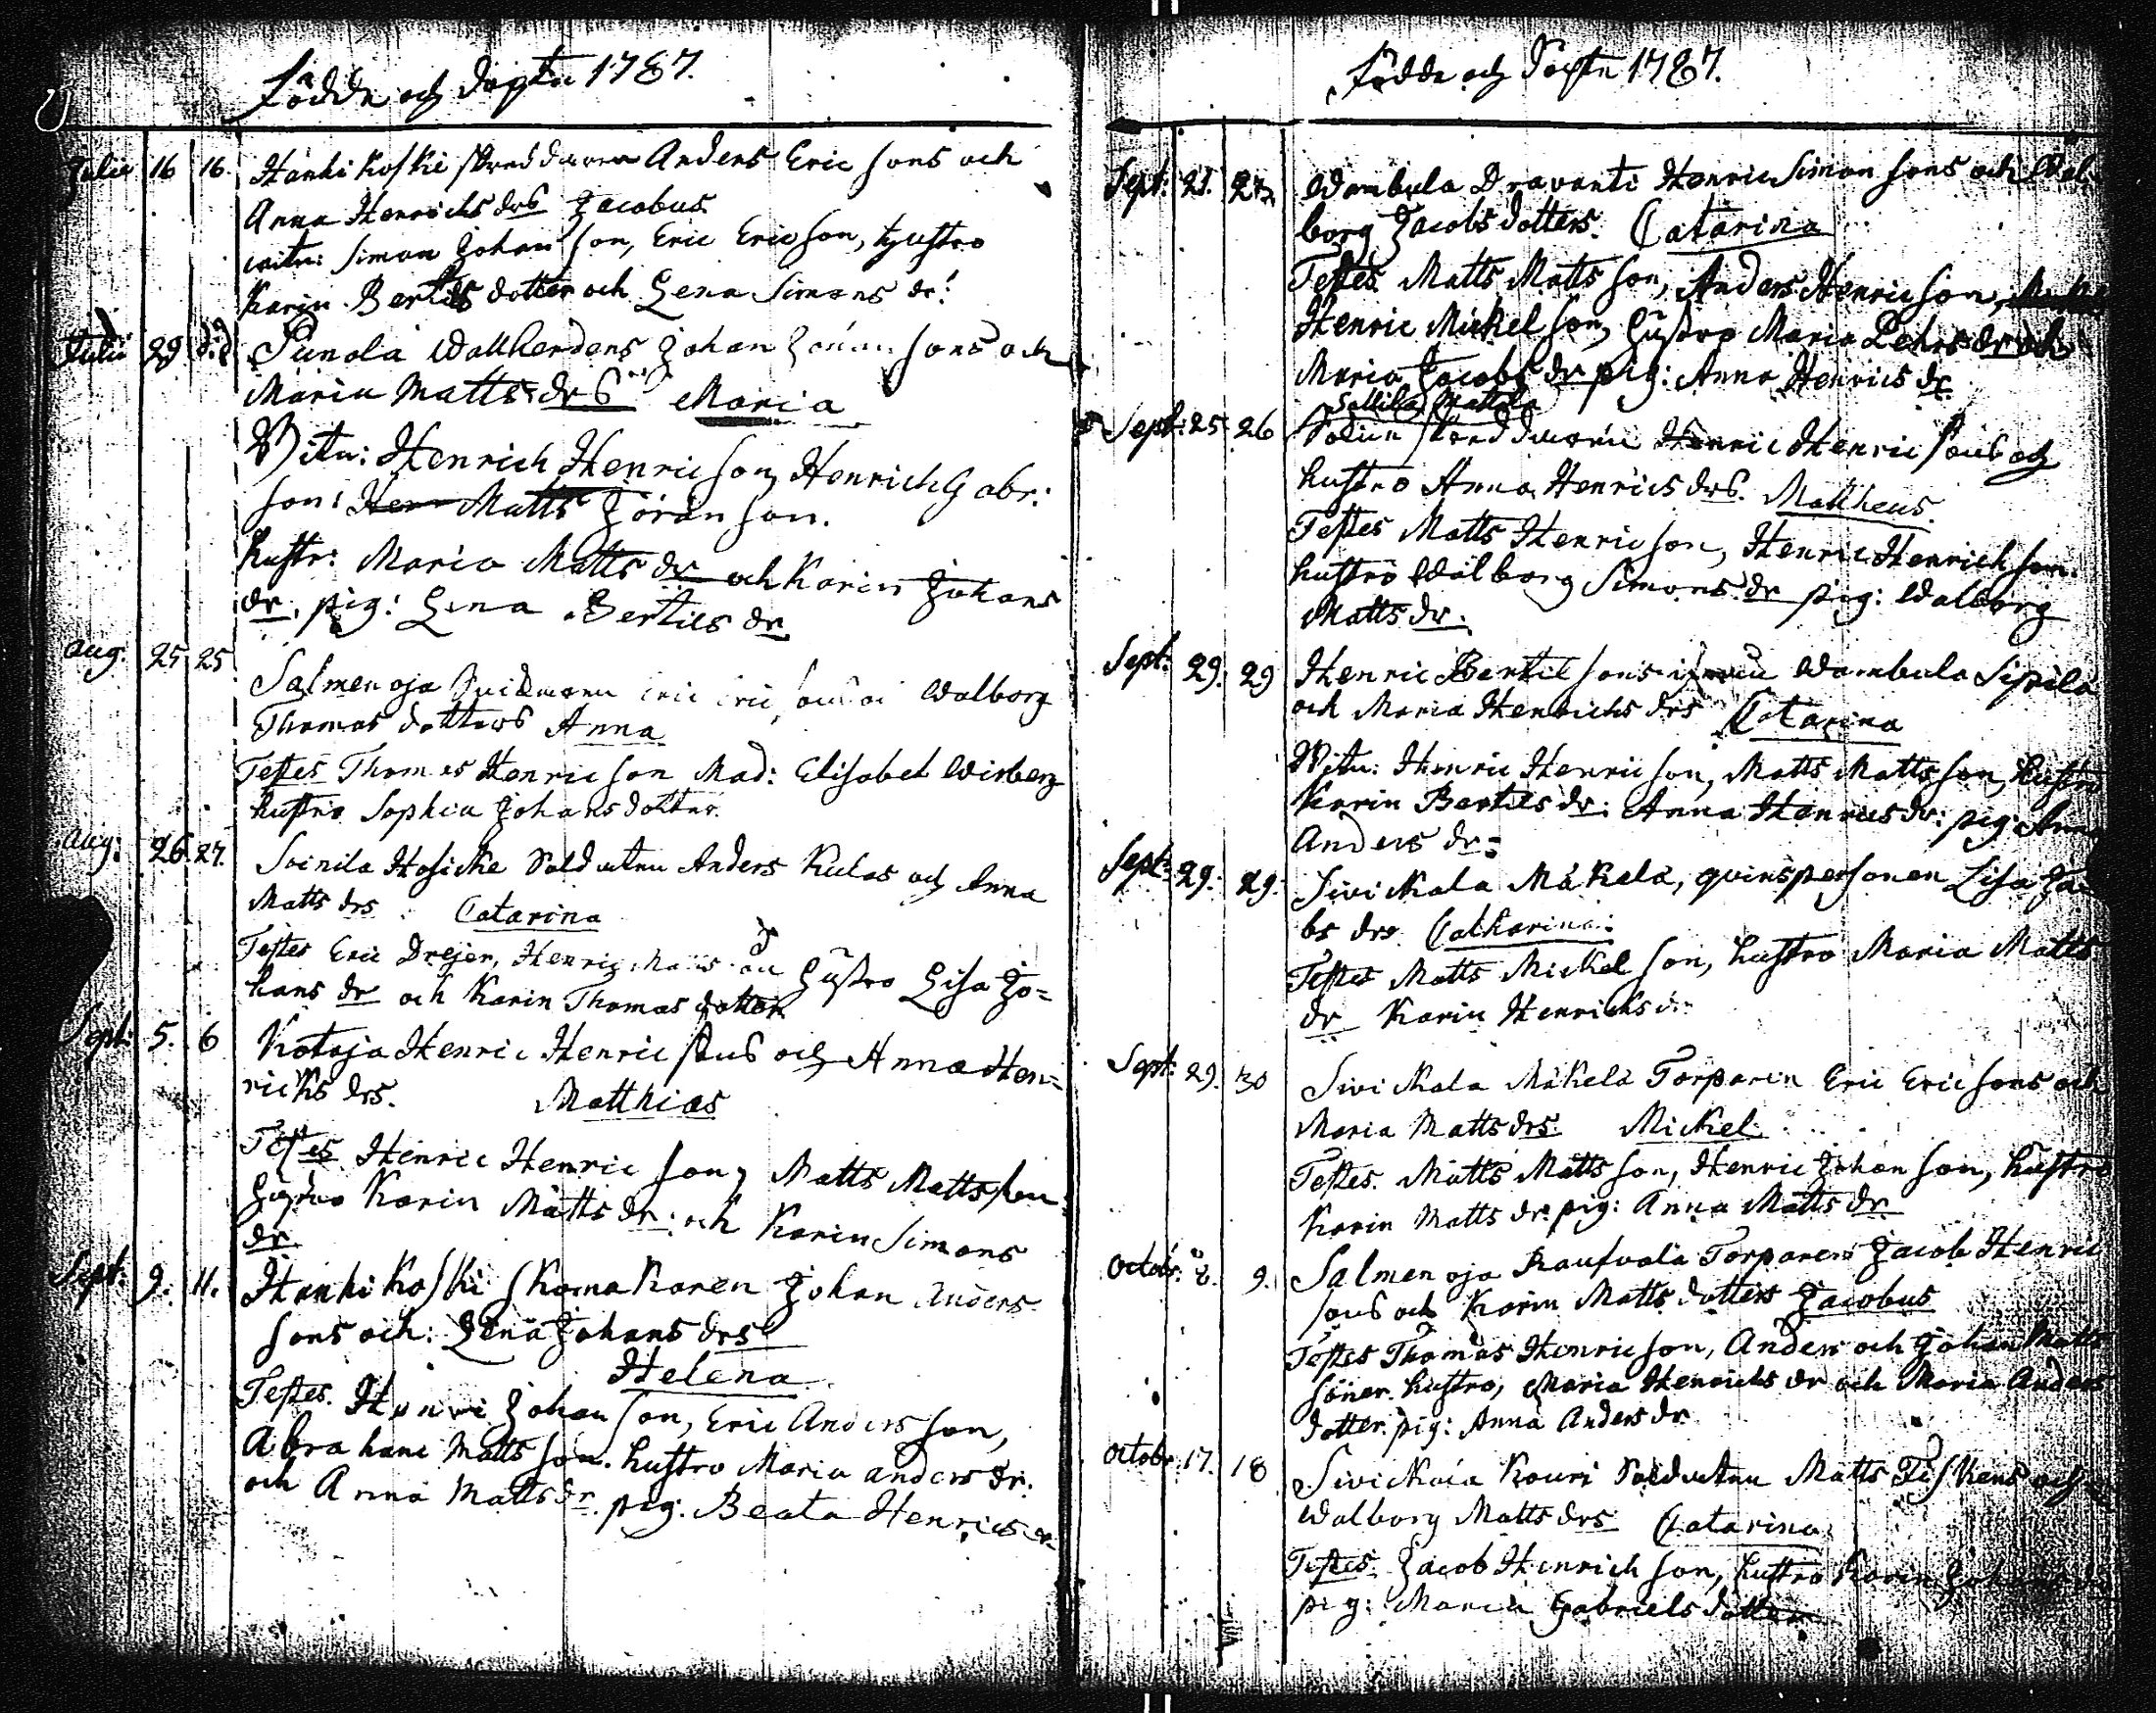 Födde och Döpte 1787.
Julii 16 16. Hanki koski Anders Eric sons och
Anna Henrichs drs Jacobus
witn: Simon Johan son, Eric Ericson, hustro
Karin Bertils dotter och Lena Simons dr:
Julii 29 Punola Wallherdens Johan sons och
Maria Matts drs Maria
Witn: Henrich Henric son, Henrich Gabr:
son: Matts Jöran son.
hustr: Maria Matts dr och Karin Johans
dr. pig: Lena Bertils dr
Aug. 25 25 Salmenoja Eric Walborg
Thomas dotters Anna
Testes Thomas Henric son Mad: Elisabet Winberg
hustro Sophia Johans dotter.
Aug: 26. 27. Soinila Hosike Soldaten Anders Kulas och Anna
Matts drs Catarina
Testes Eric Drejer, Henric hustro Lisa Jo=
hans dr och Karin Thomas dotter
Sept: 5. 6 Kotoja Henric Henric sons och Anna Hen=
richs drs. Matthias
Testes Henric Henric son, Matts Matts son
hustro Karin Matts dr: och Karin Simons
dr.
Sept: 9. 11. Hanki Koski Skomakaren Johan Anders
sons och: Lena Johans drs
Helena
Testes. Henric Johan son, Eric Anders son,
Abraham Matts son. hustro Maria anders dr:
och Anna Matts dr. pig: Beata Henrics dr
Födde och Döpte 1787.
Sept: 21. 22 Wambula Dravanti Henric Simon sons och Wal
borg Jacobs dotters. Catarina
Testes Matts Matts son, Anders Henric son,
Henric Mickel son, hustro Maria dr och
Maria Jacobs dr pig: Anna Henrics dr
Sallila Mattila
Sept: 25 26 Henric Henric sons och
hustro Anna Henrics drs. Mattheus.
Testes Matts Henric son, Henric Henrich son.
hustro Walborg Simons dr pig: Walborg
Matts dr.
Sept: 29. 29 Henric Bertil sons ifrån Wambula Sipilä
och Maria Henrichs drs Catarina
Witn: Henric Henric son, Matts Matts son, hustro
Karin Bertils dr: Anna Henrics dr: pig Anna
Anders dr:
Sept: 29. 29. Sivickala Mäkelä, qvinspersonen Lisa Ja
bs drs Catharina.
Testes Matts Mickel son, hustro Maria Matts
dr Karin Henrichs dr
Sept: 29. 30 Sivickala Mäkelä Torparen Eric Eric sons och
Maria Matts drs. Mickel.
Testes. Matts Matts son, Henric Johan son, hustro
Karin Matts dr. pig: Anna Matts dr.
Octobr. 8. 9. Salmenoja Torparen Jacob Henric
sons och Karin Matts dotters Jacobus
Testes Thomas Henric son, Anders och Johan Matts
söner. hustro, Maria Henrichs dr och Maria Anders
dotter. pig: Anna Anders dr
Octobr. 17. 18 Kouri Soldaten Matts Fiskens och
Walborg Matts drs Catarina
Testes. Jacob Henrich son, hustro Karin Johans
pig: Maria Gabriels dotter